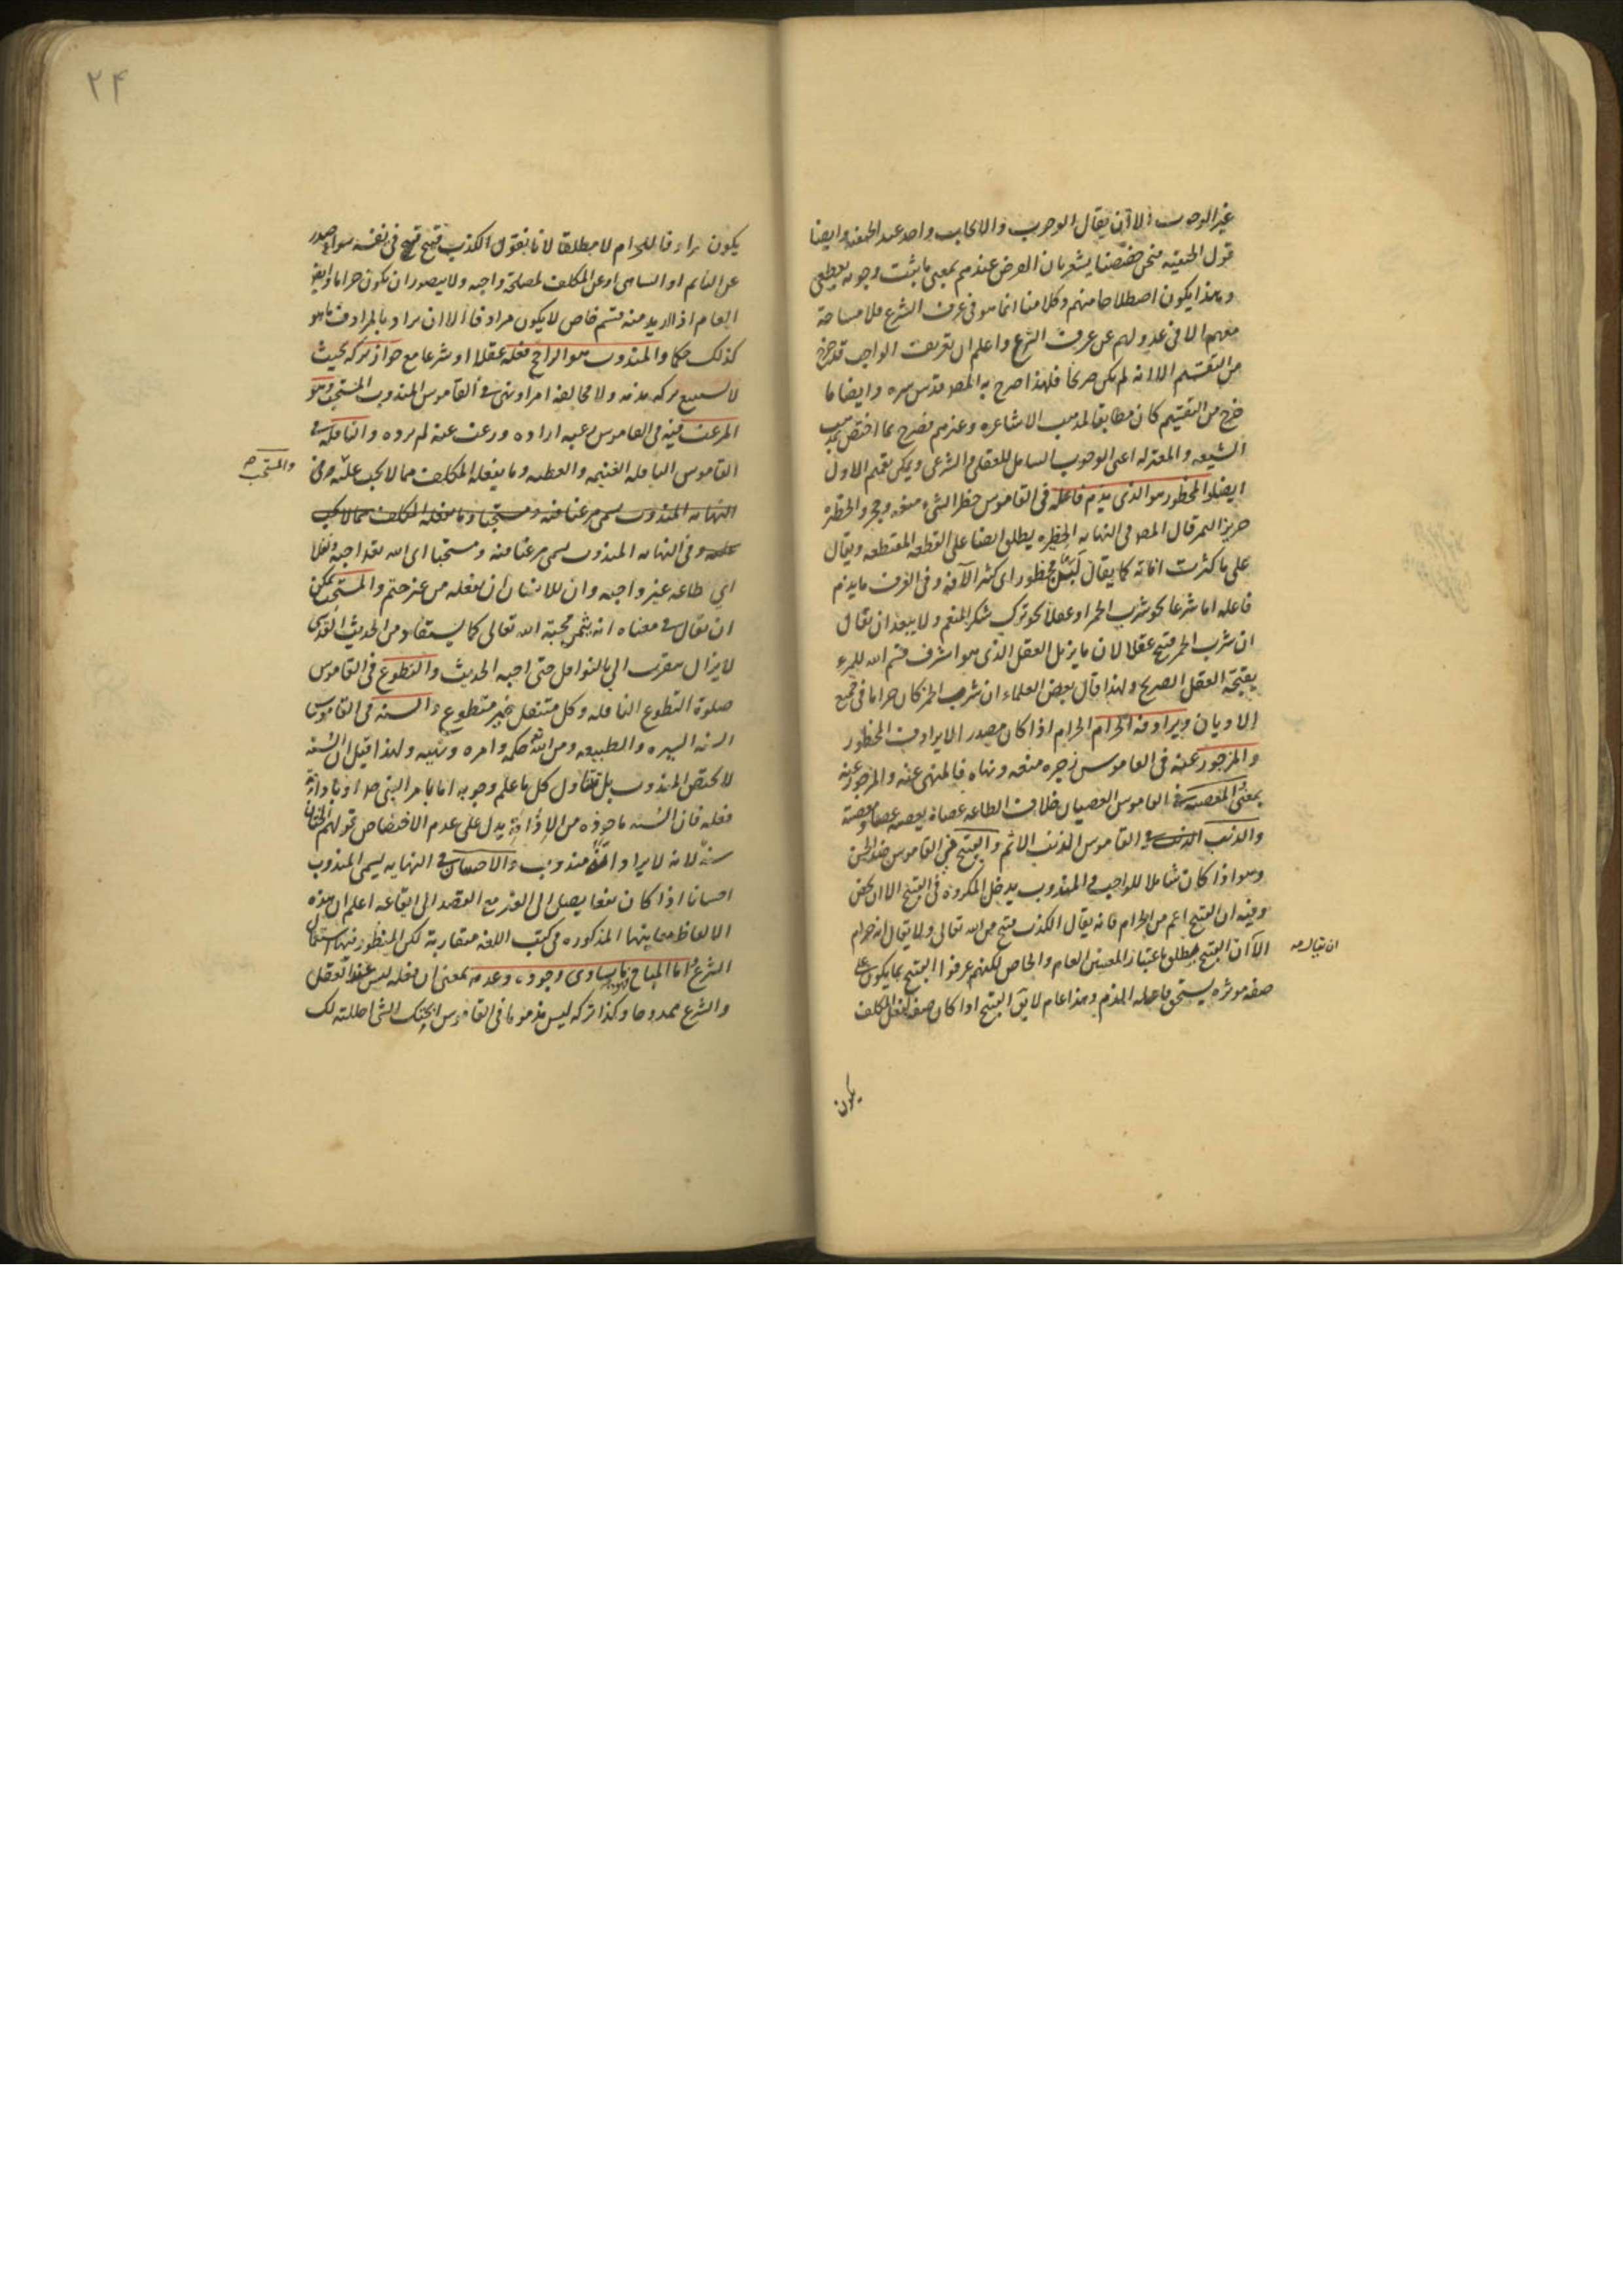 غير الوجوب الا ان يقال الوجوب والايجاب واحد عند الحنفية وايضا
قول الحنفية فنحن خصصنا يشعر بان الفرض عندهم بمعنى ما ثبت وجوبه بقطعي
وبهذا يكون اصطلاحا منهم وكلامنا انما هو في عرف الشرع فلا مشاحة
معهم الا في عدولهم عن عرف الشرع واعلم ان تعريف الواجب قد خرج
من التقسيم الا انه لم يكن صريحا فلهذا صرح به المصـ قدس سره وايضا ما
خرج من التقسيم كان مطابقا لمذهب الاشاعرة وغيرهم فصرح بما اختص بمذهب
الشيعة والمعتزلة اعني الوجوب الشامل للعقلي والشرعي ويمكن تعميم الاول
ايضا والمحظور هو الذي يذم فاعله في القاموس حظر الشيء منعه وحجر والحظيرة
جرين التمر قال المصـ في النهاية الحظيرة يطلق ايضا على القطعة المنقطعة ويقال
على ما كثرت افاته كما يقال لبن محظور اي كثير الآفة وفي العرف ما يذم
فاعله اما شرعا نحو شرب الخمر او عقلا نحو ترك شكر المنعم ولا يبعد ان يقال
ان شرب الخمر قبيح عقلا لان ما يزيل العقل الذي هو اشرف قسم الله للمرء
يقبحه العقل الصريح ولهذا قال بعض العلماء ان شرب الخمر كان حراما في جميع
الاديان ويرادفه الحرام الحرام اذا كان مصدر الا يرادف المحظور
والمزجور عنه في القاموس زجره منعه ونهاه فالمنهي عنه والمزجور عنه
بمعنى والمعصية في القاموس العصيان خلاف الطاعة عصاه يعصيه عصيا ومعصية
والذنب في القاموس الذنب الاثم والقبيح في القاموس ضد الحسن
وهو اذا كان شاملا للواجب والمندوب يدخل المكروه في القبيح الا ان يخص
وفيه ان القبيح اعم من الحرام فانه يقال الكذب قبيح من الله تعالى ولا يقال انه حرام
الا ان القبيح يطلق باعتبار المعنيين العام والخاص لكنهم عرفوا القبيح بما يكون على
ان يقال صه
صفة موثرة يستحق فاعله الذم وهذا عام لا يق القبيح اذا كان صفة لفعل المكلف
يكون
٢۴
يكون مرادفا للحرام لا مطلقا لانا نقول الكذب قبيح قبيح في نفسه سواء صدر
عن النايم او الساهي او عن المكلف لمصلحة واجبة ولا يتصور ان يكون حراما وايض
العام اذا اريد منه قسم خاص لا يكون مرادفا الا ان يراد بالمرادف ما هو
كذلك حكما والمندوب هو الراجح فعله عقلا او شرعا مع جواز تركه بحيث
لا يستتبع تركه مذمة ولا مخالفة امر او نهي في القاموس المندوب المستحب وهو
المرغب فيه في القاموس رغب فيه اراده ورغب عنه لم يرده والنافلة في
القاموس النافلة الغنيمة والعطية وما يفعله المكلف مما لا يجب عليه وفي
والمستحب صه
النهاية المندوب يسمى مرغبا فيه ومستحبا وما يفعله المكلف مما لا يجب
عليه وفي النهاية المندوب يسمى مرغبا فيه ومستحبا اي الله تعالى احبه ونفلا
اي طاعة غير واجبة وان للانسان ان يفعله من غير حتم والمستحب يمكن
ان يقال في معناه انه يثمر محبة الله تعالى كما يستفاد من الحديث القدسي
لا يزال يتقرب الي بالنوافل حتى احبه الحديث والتطوع في القاموس
صلوة التطوع النافلة وكل متنفل خير متطوع والسنة في القاموس
السنة السيرة والطبيعة ومن الله حكمه وامره ونهيه ولهذا قيل ان السنة
لا يختص المندوب بل يتناول كل ما علم وجوبه اما بامر النبي صـ او بادامة
فعله فان السنة ماخوذة من الادامة يدل على عدم الاختصاص قولهم الختان
سنة لانه لا يراد انه مندوب والاحسان في النهاية يسمى المندوب
احسانا اذا كان نفعا يصل الى الغير مع القصد الى ايقاعه اعلم ان هذه
الالفاظ معانيها المذكورة في كتب اللغة متقاربة لكن المنظور فيها استعمال
الشرع واما المباح ما يساوي وجوده وعدمه بمعنى ان فعله ليس عند العقل
والشرع ممدوحا وكذا تركه ليس مذموما في القاموس ابحتك الشي احللته لك